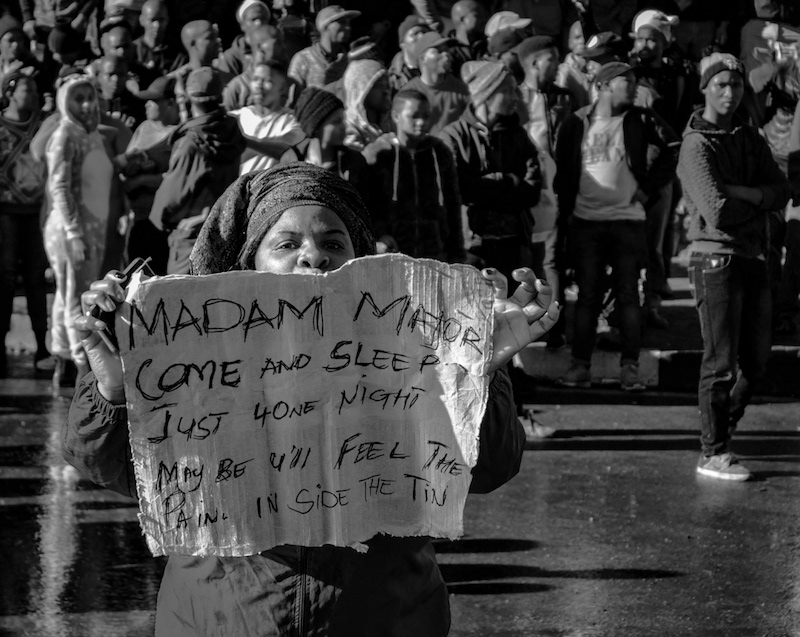 MADAM MAJOR
COME AND SLEEP
JUST 4ONE NIGHT
MAY BE U'll FEEL THE
PAIN. IN SIDE THE TIN